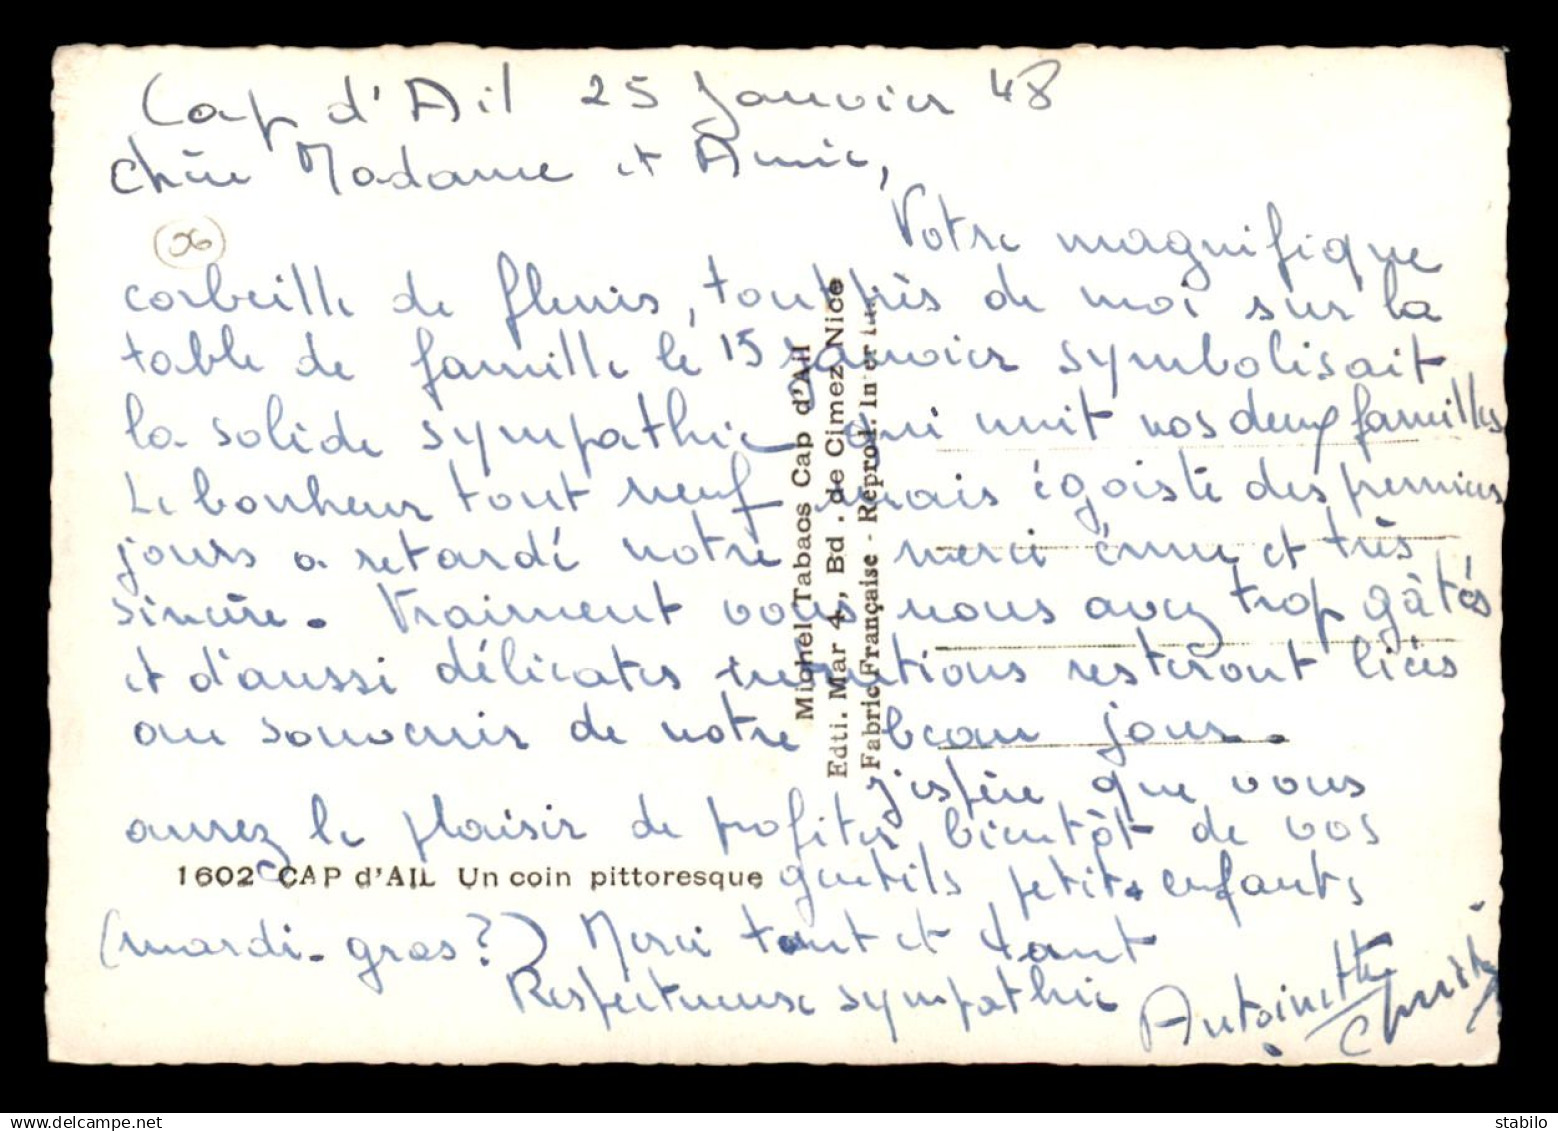 Cap d'Ail 25 Janvier 48
Chère Madame et Amie,
06
Votre magnifique
corbeille de fleurs, tout près de moi sur la
table de famille le 15 janvier symbolisait
la solide sympathie qui unit nos deux familles
Le bonheur tout neuf mais égoïste des premiers
jours a retardé notre merci ému et très
sincère. Vraiment vous nous avez trop gâtés
et d'aussi délicates intentions resteront liées
au souvenir de notre beau jour.
j'espère que vous
aurez le plaisir de profiter bientôt de vos
gentils petits enfants
(mardi-gras?) Merci tout et tant
Respectueuse sympathie
Antoinette
1602 CAP d'AIL Un coin pittoresque
Michel Tabacs Cap d'Ail
Edti. Mar 4, Bd. de Cimez Nice
Fabric. Française - Reprod. Inter